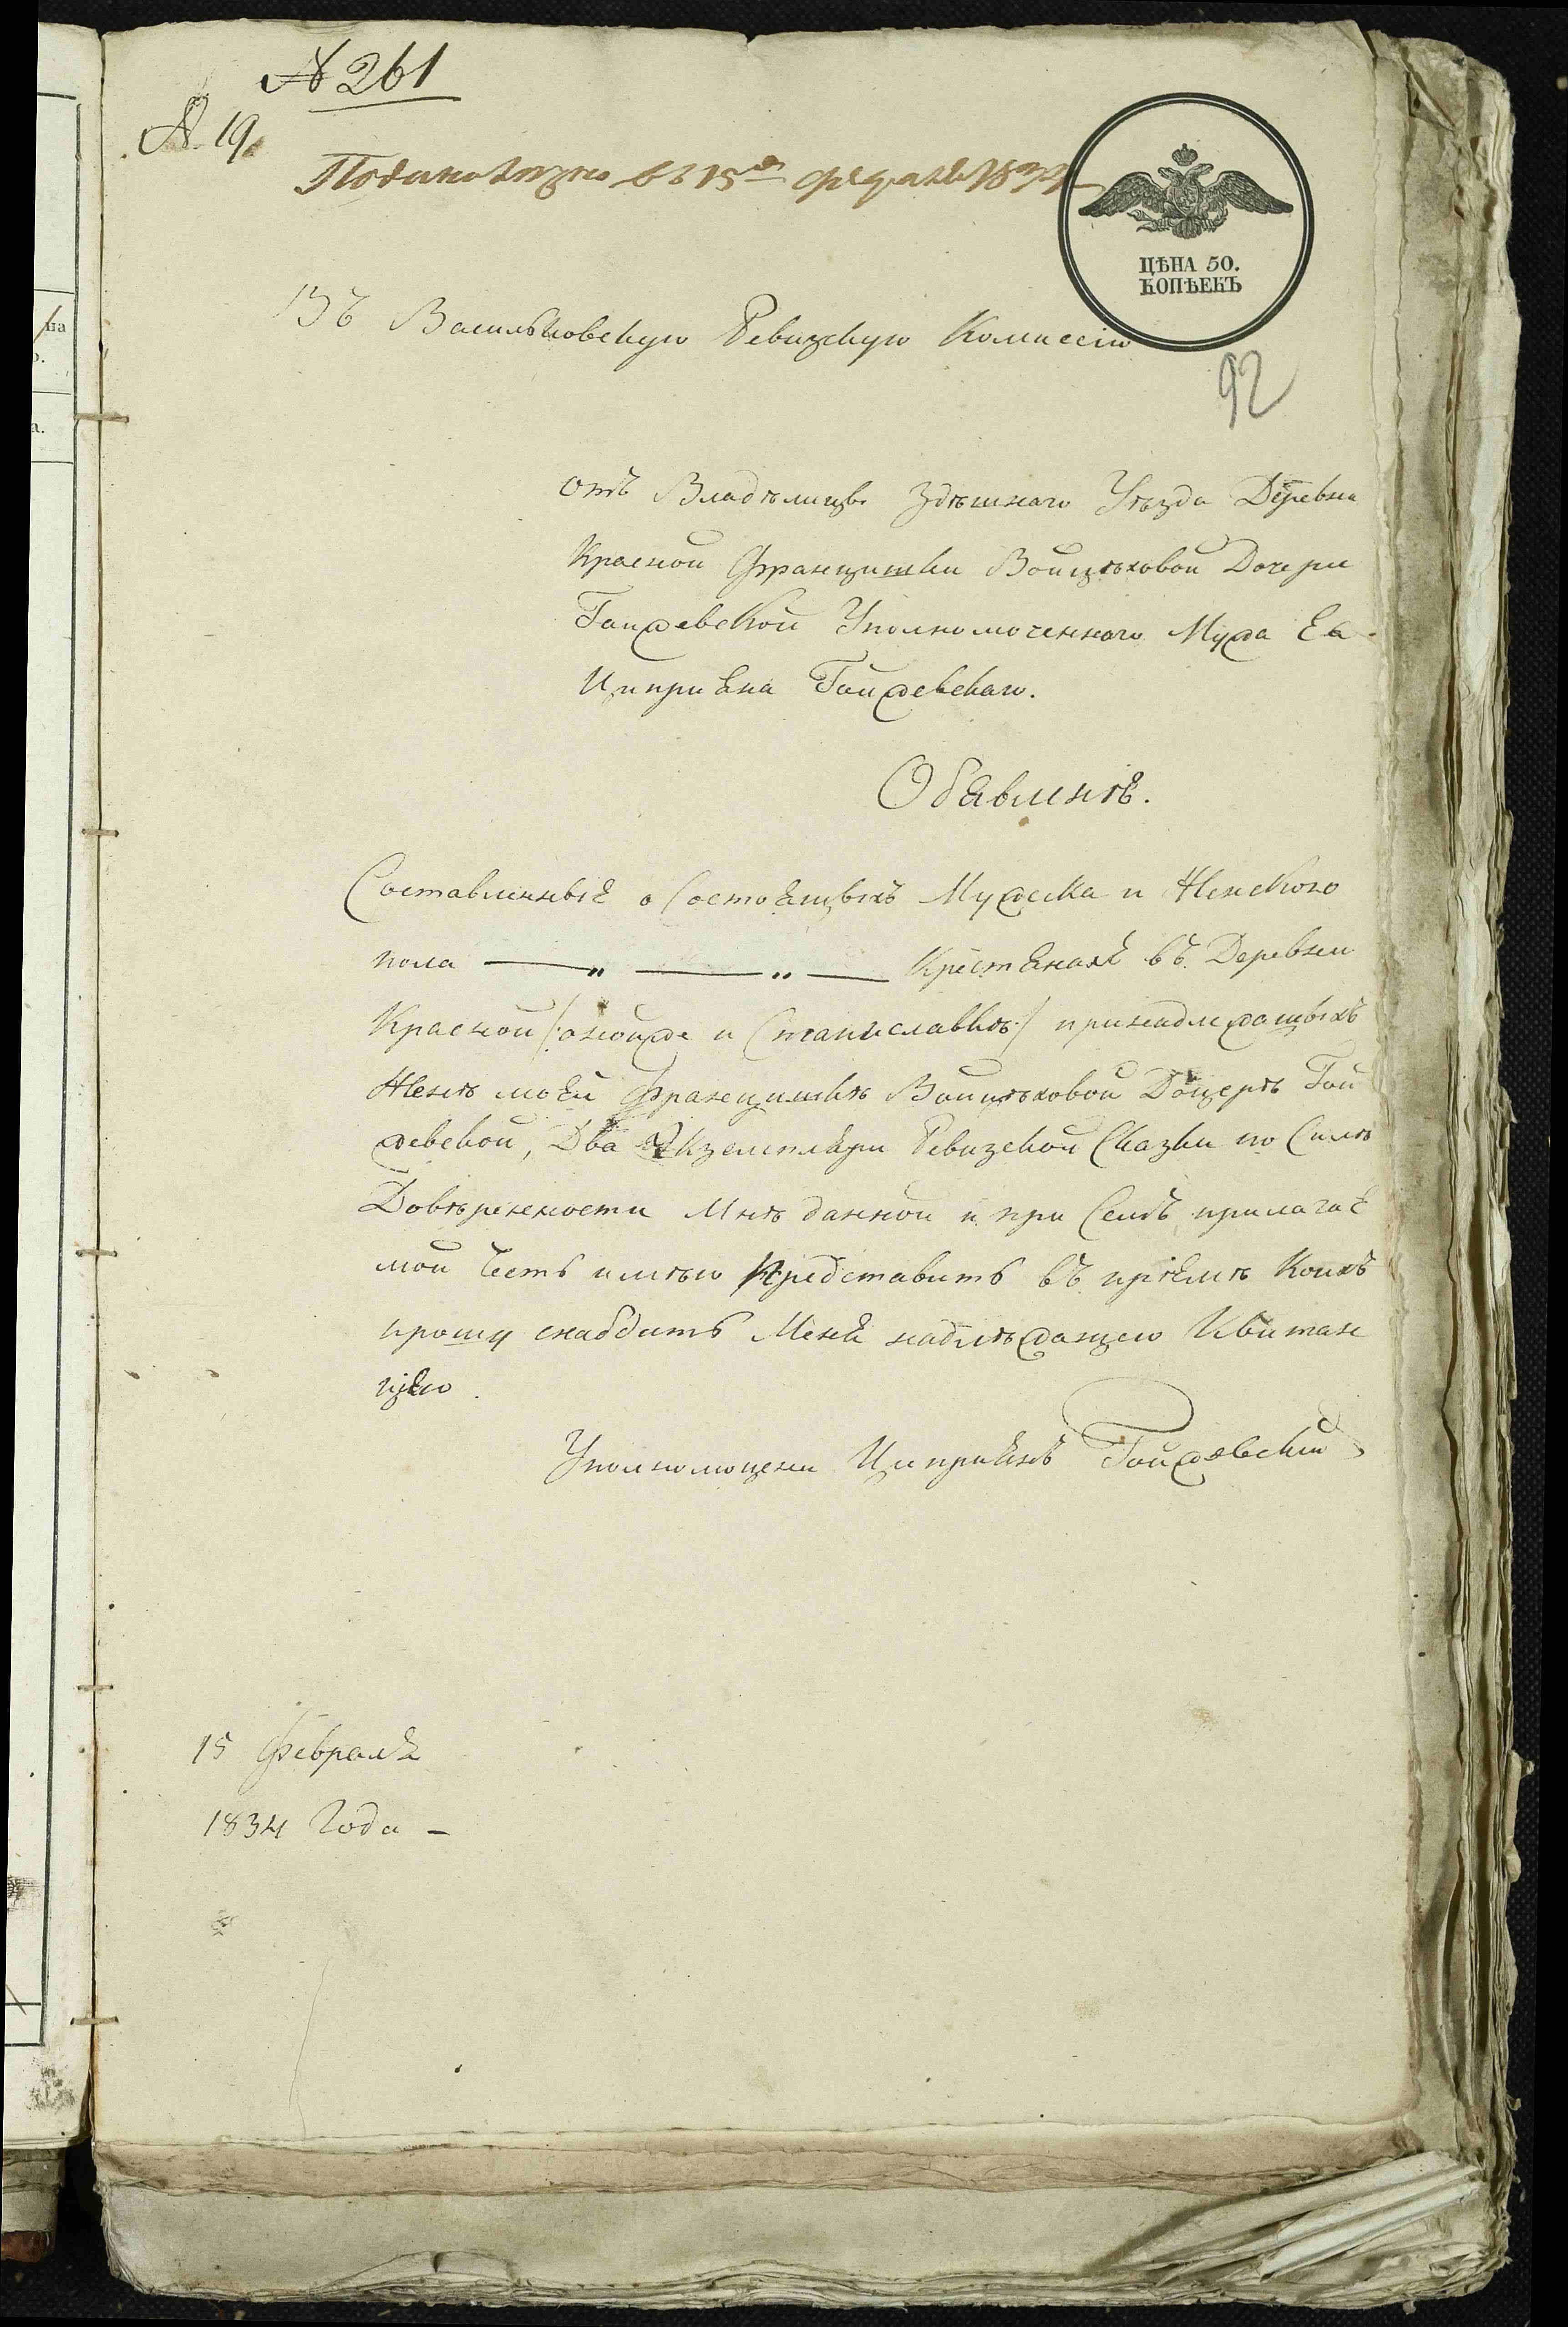 № 261
№ 19
Подано лично въ 15й февраля 1834
ЦѢНА 50.
КОПѢЕКЪ
Въ Васильковскую Ревизкую Комиссію
92
отъ Владѣлицы Здѣшнаго Уѣзда Деревни
Красной Францишки Войцѣховой Дочери
Гайжевской Уполномоченнаго Мужа Ея
Циприяна Гайжевскаго.
Обявленіе.
Составленныя о Состоящихъ Мужеска и Женского
пола — „ — „ — Крестянахъ въ Деревни
Красной /: онойже и Станиславкѣ :/ принадлежащыхъ
Женѣ моей Францишкѣ Войцѣховой Доцерѣ Гай
жевской, Два Экземпляри Ревизской Сказки по Силѣ
Довѣренности Мнѣ данной и при Семъ прилагае
мой Честь имѣю представить въ приемѣ Коихъ
прошу снабдить Меня надлѣжащею Квитан
циею.
Уполномоцени Циприянъ Гайжевскій
15 Февраля
1834 Года —